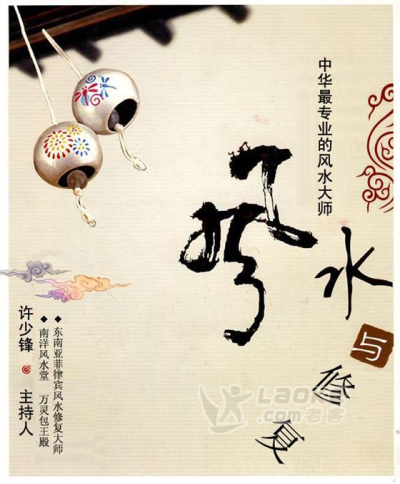 中华最专业的风水大师
风水与修复
◆东南亚菲律宾风水修复大师
◆南洋风水堂 万灵包王殿
许少锋 主持人
.com老客